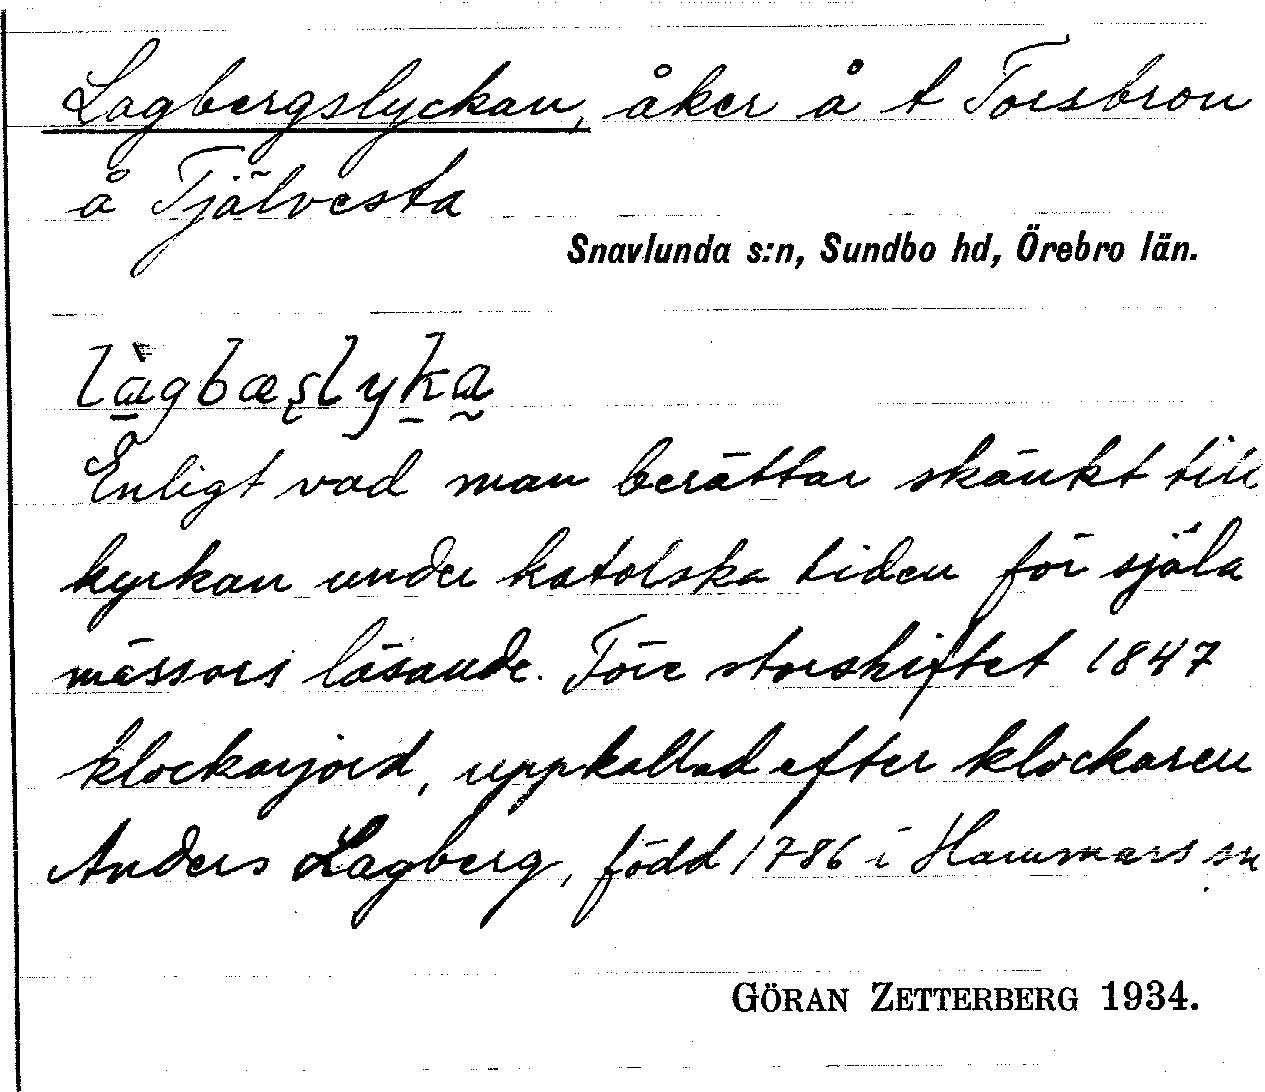 Lagbergslyckan, åker å t Torsbron
å Tjälvesta
Snavlunda s:n, Sundbo hd, Örebro län.
làgbæşlyka
Enligt vad man berättar skänkt till
kyrkan under katolska tiden för själa
mässors läsande. Före storskiftet 1847
klockarjord, uppkallad efter klockaren
Anders Lagberg, född 1786 i Hammars sn
GÖRAN ZETTERBERG 1934.